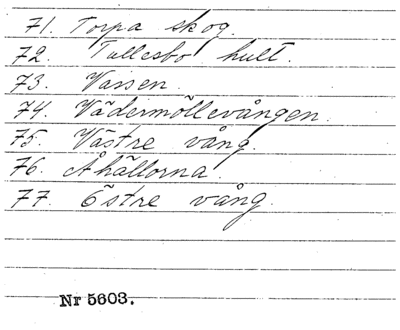 71. Torpa skog.
72. Tullesbo hult.
73. Vassen.
74. Vädermöllevången.
75. Västre vång.
76. Åhällorna.
77. Östre vång.
Nr 5603.